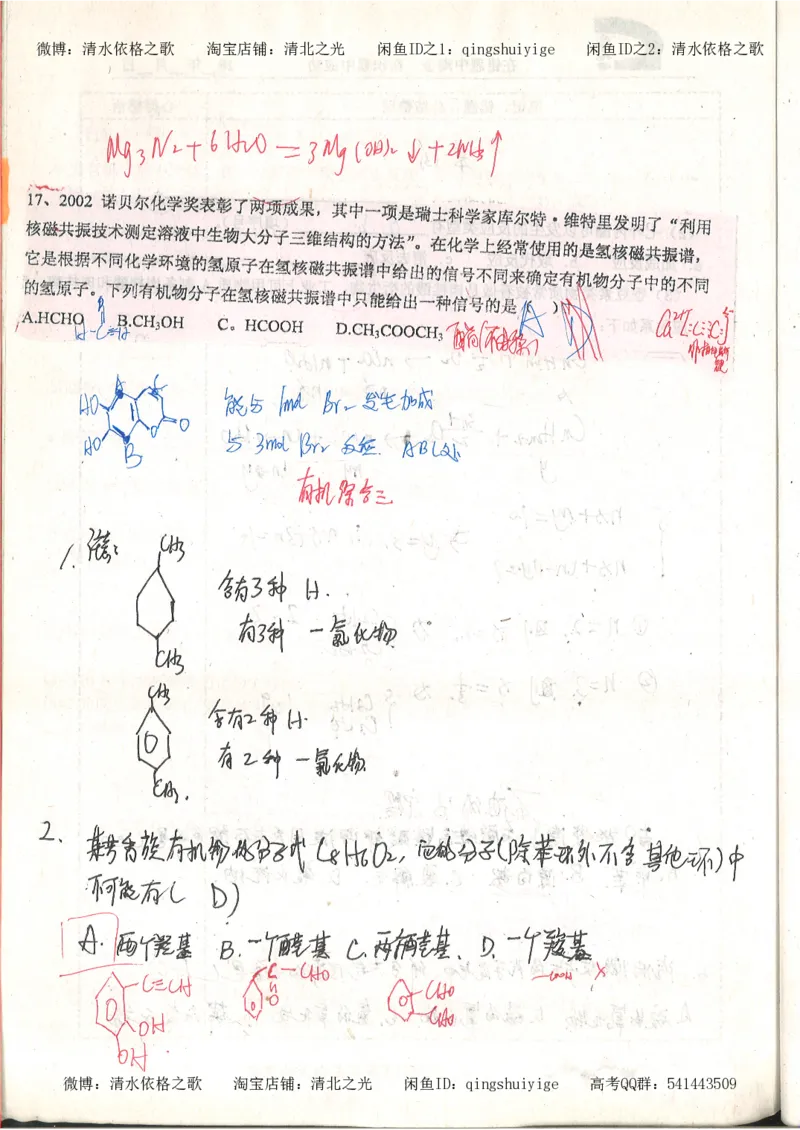 微博：清水依格之歌 淘宝店铺：清北之光 闲鱼ID之1：qingshuiyige 闲鱼ID之2：清水依格之歌
Mg3N2+6H2O=3Mg(OH)2↓+2NH3↑
17、2002 诺贝尔化学奖表彰了两项成果，其中一项是瑞士科学家库尔特·维特里发明了“利用
核磁共振技术测定溶液中生物大分子三维结构的方法”。在化学上经常使用的是氢核磁共振谱，
它是根据不同化学环境的氢原子在氢核磁共振谱中给出的信号不同来确定有机物分子中的不同
的氢原子。下列有机物分子在氢核磁共振谱中只能给出一种信号的是（A）
A.HCHO B.CH3OH C。HCOOH D.CH3COOCH3
HO
HO
A
C
O
O
B
能与1mol Br2发生加成
与3mol Br2反应. ABC处
有机综合三
1.
CH3
含有3种H.
有3种一氯化物
CH3
CH3
含有2种H.
有2种一氯化物
CH3.
2. 某芳香族有机物的分子式C8H6O2，它的分子(除苯环外不含其他环)中
不可能有( D)
A.两个羟基 B.一个醛基 C.两个醛基. D.一个羧基
C≡CH
OH
OH
C-CHO
O
CHO
CHO
-COOH X
微博：清水依格之歌 淘宝店铺：清北之光 闲鱼ID：qingshuiyige 高考QQ群：541443509